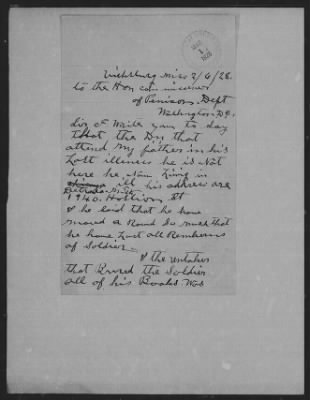 Vicksburg Miss 2/6/28.
to the Hon com missioner
of Penison. Dept
Washington D.C.
MAR 1 1928
Write you to day
that the Dr that
attend my father in his
Last illness he is Not
here he Now Living in
Ill his address are
1940. St
& he said that he have
moved a Round So much that
he have Lost all Rembernc
of Soldier.
& the
that Bured the Soldier
all of his Books Was